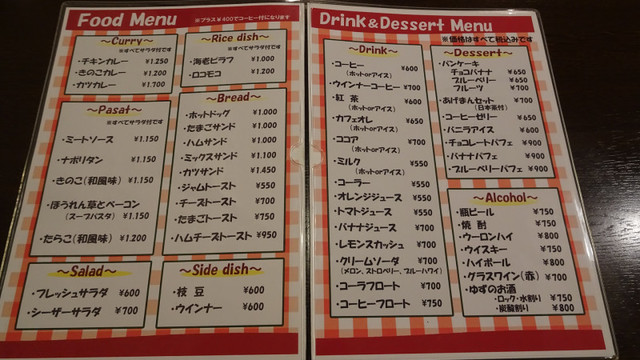 Food Menu ※プラス¥400でコーヒー付になります
~Curry~
※すべてサラダ付です
・チキンカレー ¥1.250
・きのこカレー ¥1.200
・カツカレー ¥1.700
~Rice dish~
※すべてサラダ付です
・海老ピラフ ¥1.000
・ロコモコ ¥1.200
~Pasat~
※すべてサラダ付です
・ミートソース ¥1.150
・ナポリタン ¥1.150
・きのこ(和風味) ¥1.150
・ほうれん草とベーコン
(スープパスタ) ¥1.150
・たらこ(和風味) ¥1.200
~Bread~
・ホットドッグ ¥1.000
・たまごサンド ¥1.000
・ハムサンド ¥1.000
・ミックスサンド ¥1.100
・カツサンド ¥1.450
・ジャムトースト ¥550
・チーズトースト ¥700
・たまごトースト ¥750
・ハムチーズトースト ¥950
~Salad~
・フレッシュサラダ ¥600
・シーザーサラダ ¥700
~Side dish~
・枝豆 ¥600
・ウインナー ¥600
Drink&Dessert Menu
※価格はすべて税込みです
~Drink~
・コーヒー ¥600
(ホットorアイス)
・ウインナーコーヒー ¥700
・紅茶 ¥600
(ホットorアイス)
・カフェオレ ¥650
(ホットorアイス)
・ココア ¥700
(ホットorアイス)
・ミルク ¥550
(ホットorアイス)
・コーラー ¥550
・オレンジジュース ¥550
・トマトジュース ¥550
・バナナジュース ¥700
・レモンスカッシュ ¥700
・クリームソーダ ¥700
(メロン、ストロベリー、ブルーハワイ)
・コーラフロート ¥700
・コーヒーフロート ¥750
~Dessert~
・パンケーキ
チョコバナナ ¥650
ブルーベリー ¥650
フルーツ ¥700
・あげまんセット ¥700
(日本茶付)
・コーヒーゼリー ¥650
・バニラアイス ¥600
・チョコレートパフェ ¥900
・バナナパフェ ¥900
・ブルーベリーパフェ ¥900
~Alcohol~
・瓶ビール ¥750
・焼酎 ¥750
・ウーロンハイ ¥800
・ウイスキー ¥750
・ハイボール ¥800
・グラスワイン(赤) ¥700
・ゆずのお酒
・ロック・水割り ¥750
・炭酸割り ¥800